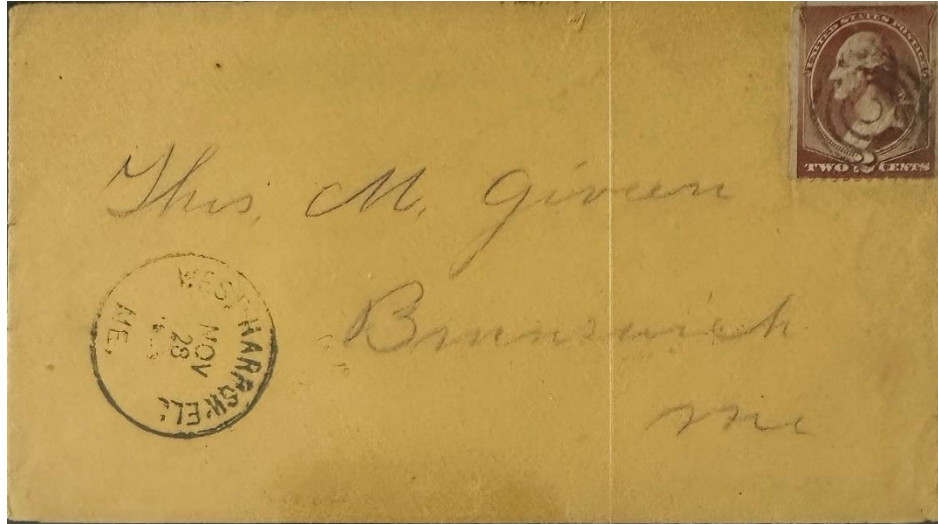 UNITED STATES POSTAGE
TWO 2 CENTS
Thos. M. Given
Brunswick
Me
WEST HARPSWELL
NOV
28
ME.